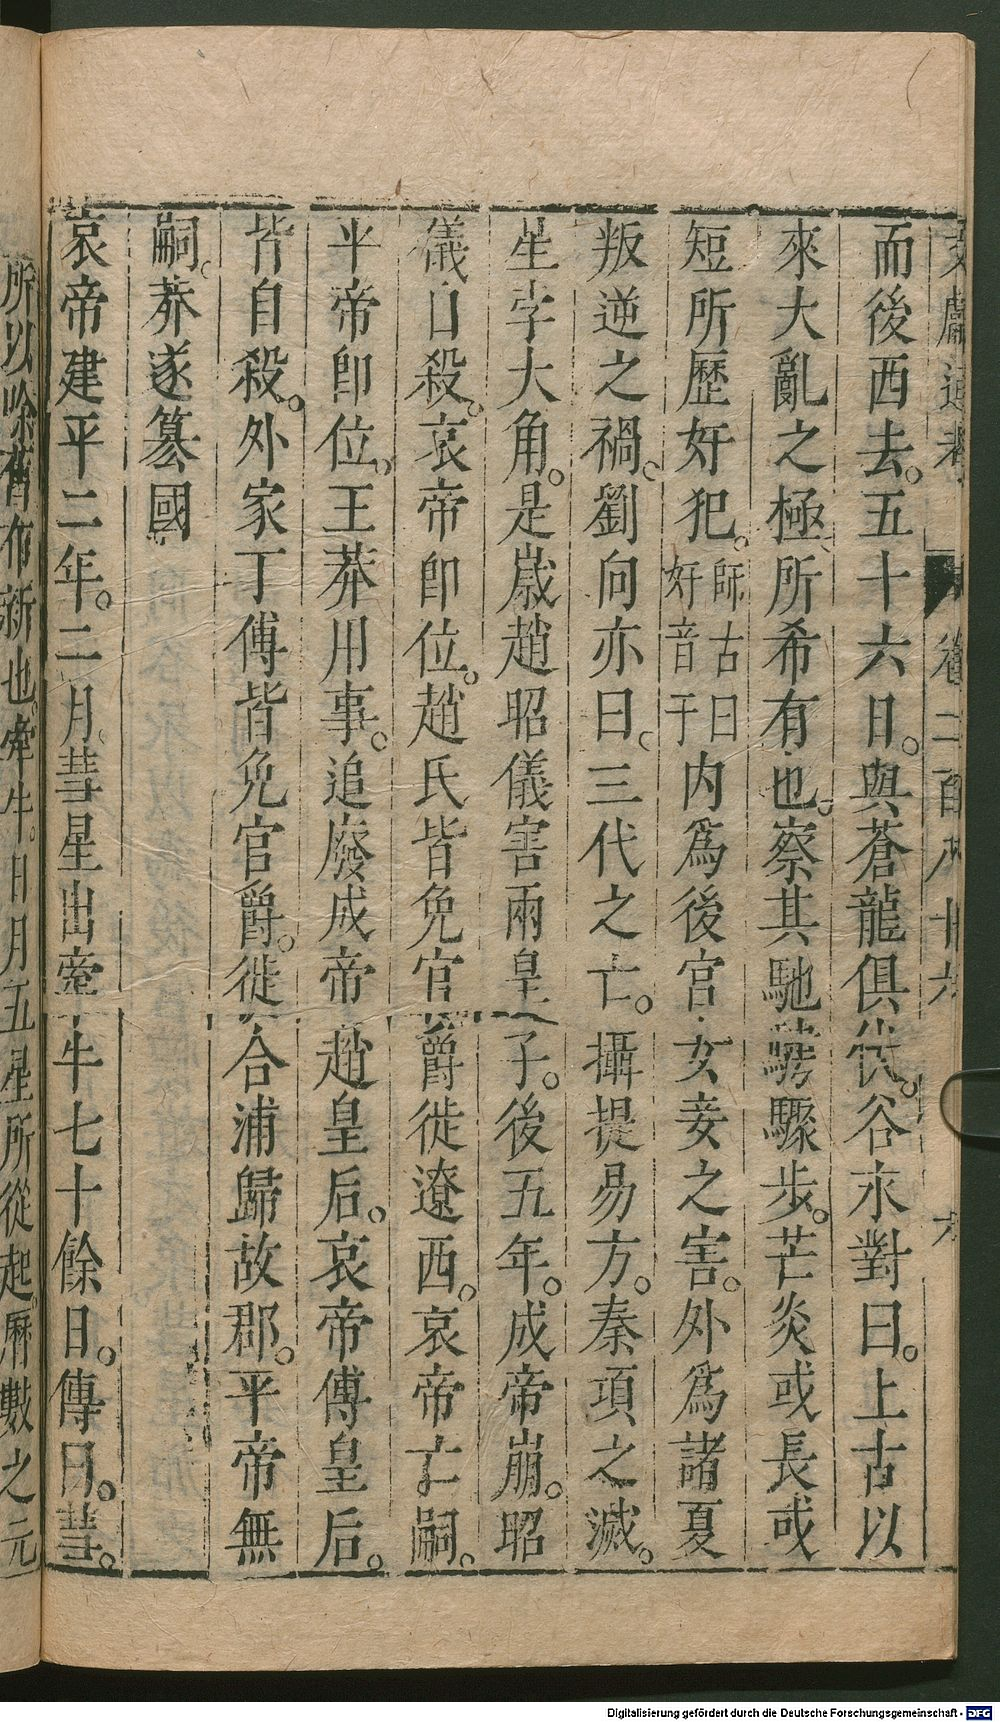 文獻通考 卷二百八十六 六
而後西去。五十六日。與蒼龍俱伏。谷永對曰。上古以
來大亂之極所希有也。察其馳騁驟步。芒炎或長或
短所歷奸犯。師古曰奸音干内爲後宮女妾之害。外爲諸夏
叛逆之禍。劉向亦曰。三代之亡。攝提易方。秦項之滅。
星孛大角。是嵗趙昭儀害兩皇子。後五年。成帝崩。昭
儀自殺。哀帝即位。趙氏皆免官爵徙遼西。哀帝亡嗣。
平帝即位。王莽用事。追廢成帝趙皇后。哀帝傅皇后。
皆自殺。外家丁傅皆免官爵。徙合浦歸故郡。平帝無
嗣。莽遂篡國
哀帝建平二年。二月彗星出牽牛七十餘日。傳曰。彗。
所以除舊布新也。牽牛。日月五星所從起。厤數之元
Digitalisierung gefördert durch die Deutsche Forschungsgemeinschaft - DFG